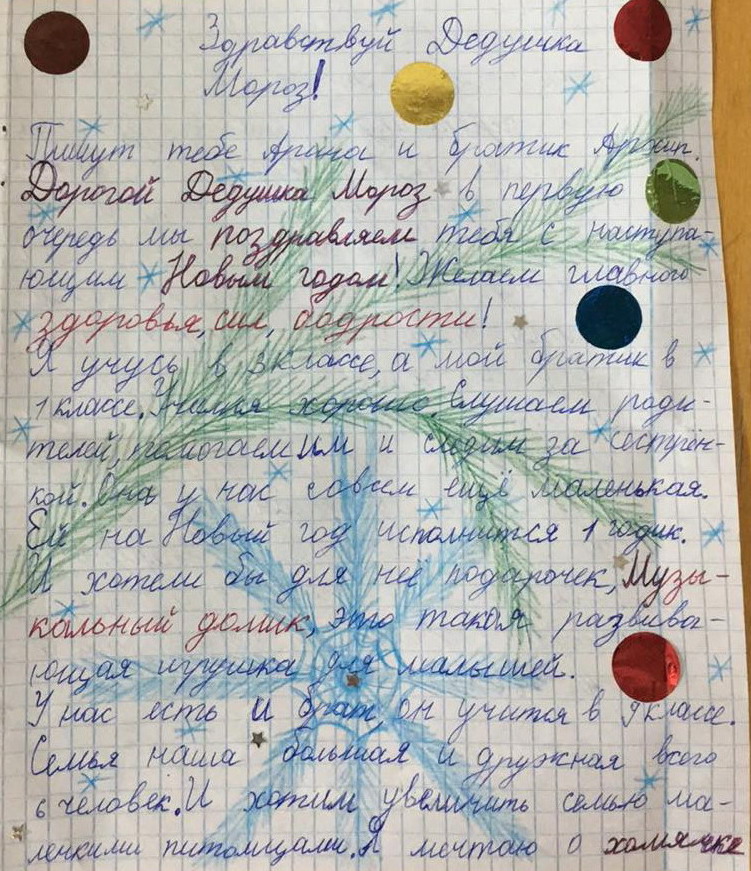 Здравствуй Дедушка
Мороз!
Пишут тебе Арина и братик Архип.
Дорогой Дедушка Мороз в первую
очередь мы поздравляем тебя с наступа-
ющим Новым годом! Желаем главного
здоровья, сил, бодрости!
Я учусь в 3 классе, а мой братик в
1 классе. Учимся хорошо. Слушаем роди-
телей, помогаем им и следим за сестрён-
кой. Она у нас совсем ещё маленькая.
Ей на Новый год исполнится 1 годик.
И хотели бы для неё подарочек, Музы-
кальный домик, это такая развива-
ющая игрушка для малышей.
У нас есть и брат, он учится в 9 классе.
Семья наша большая и дружная всего
6 человек. И хотим увеличить семью ма-
ленкими питомцами. Я мечтаю о хомячке